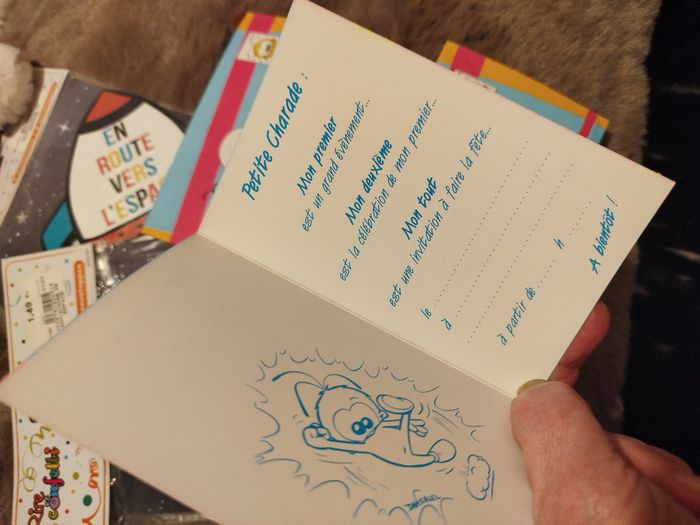 Petite Charade :
Mon premier
est un grand événement...
Mon deuxième
est la célébration de mon premier...
Mon tout
est une invitation à faire la fête...
le
à
à partir de ........ h ........
A bientôt !
EN
ROUTE
VERS
L'ESPA
1.49
Rire
et confetti